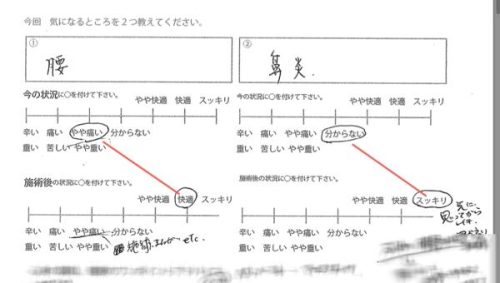 今回 気になるところを２つ教えてください。
① ②
腰 鼻炎.
今の状況に○を付けて下さい。 今の状況に○を付けて下さい。
やや快適 快適 スッキリ やや快適 快適 スッキリ
辛い 痛い やや痛い 分からない 辛い 痛い やや痛い 分からない
重い 苦しい やや重い 重い 苦しい やや重い
施術後の状況に○を付けて下さい。 施術後の状況に○を付けて下さい。
やや快適 快適 スッキリ やや快適 快適 スッキリ
気に
辛い 痛い やや痛い 分からない 辛い 痛い やや痛い 分からない
重い 苦しい やや重い etc. 重い 苦しい やや重い